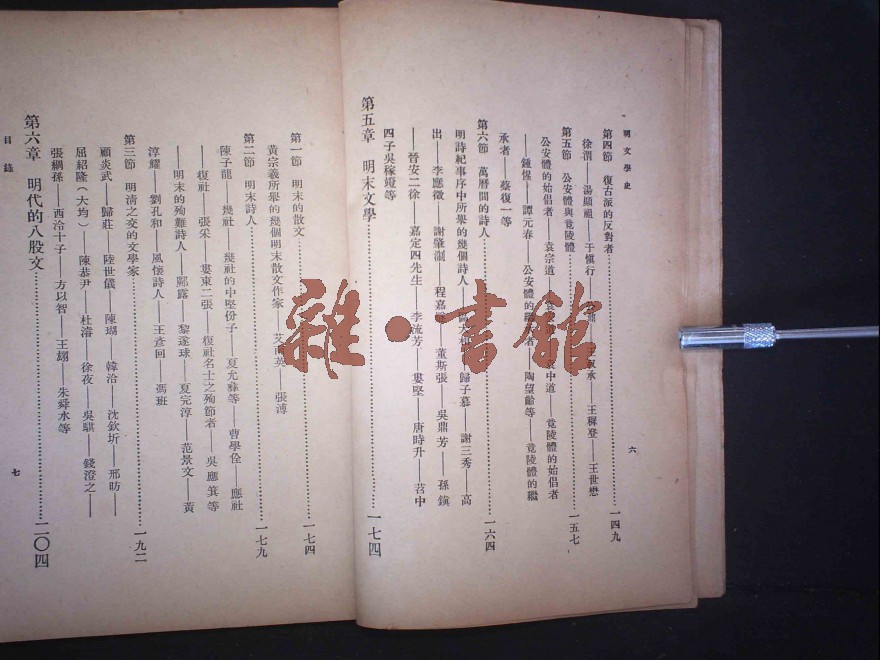 明文學史
第四節 復古派的反對者……一四九
徐渭——湯顯祖——于愼行——王叔承——王穉登——王世懋
第五節 公安體與竟陵體……一五七
公安體的始倡者——袁宗道——袁中道——竟陵體的始倡者
——鍾惺——譚元春——公安體的繼者——陶望齡等——竟陵體的繼
承者——蔡復一等
第六節 萬曆間的詩人……一六四
明詩紀事序中所舉的幾個詩人——歸子慕——謝三秀——高
出——李應徵——謝肇淛——程嘉——董斯張——吳鼎芳——孫鎮
——晉安二徐——嘉定四先生——李流芳——婁堅——唐時升——苕中
四子吳稼竳等
第五章 明末文學……一七四
六
第一節 明末的散文……一七四
黃宗羲所舉的幾個明末散文作家——艾南英——張溥
第二節 明末詩人……一七九
陳子龍——幾社——幾社的中堅份子——夏允彝等——曹學佺——應社
——復社——張采——婁東二張——復社名士之殉節者——吳應箕等
——明末的殉難詩人——鄺露——黎遂球——夏完淳——范景文——黃
淳耀——劉孔和——風懷詩人——王彥回——馮班
第三節 明清之交的文學家……一九二
顧炎武——歸莊——陸世儀——陳瑚——韓洽——沈欽圻——邢昉——
屈紹隆（大均）——陳恭尹——杜濬——徐夜——吳騏——錢澄之——
張綱孫——西泠十子——方以智——王翃——朱舜水等
第六章 明代的八股文……二〇四
目錄
七
雜·書館